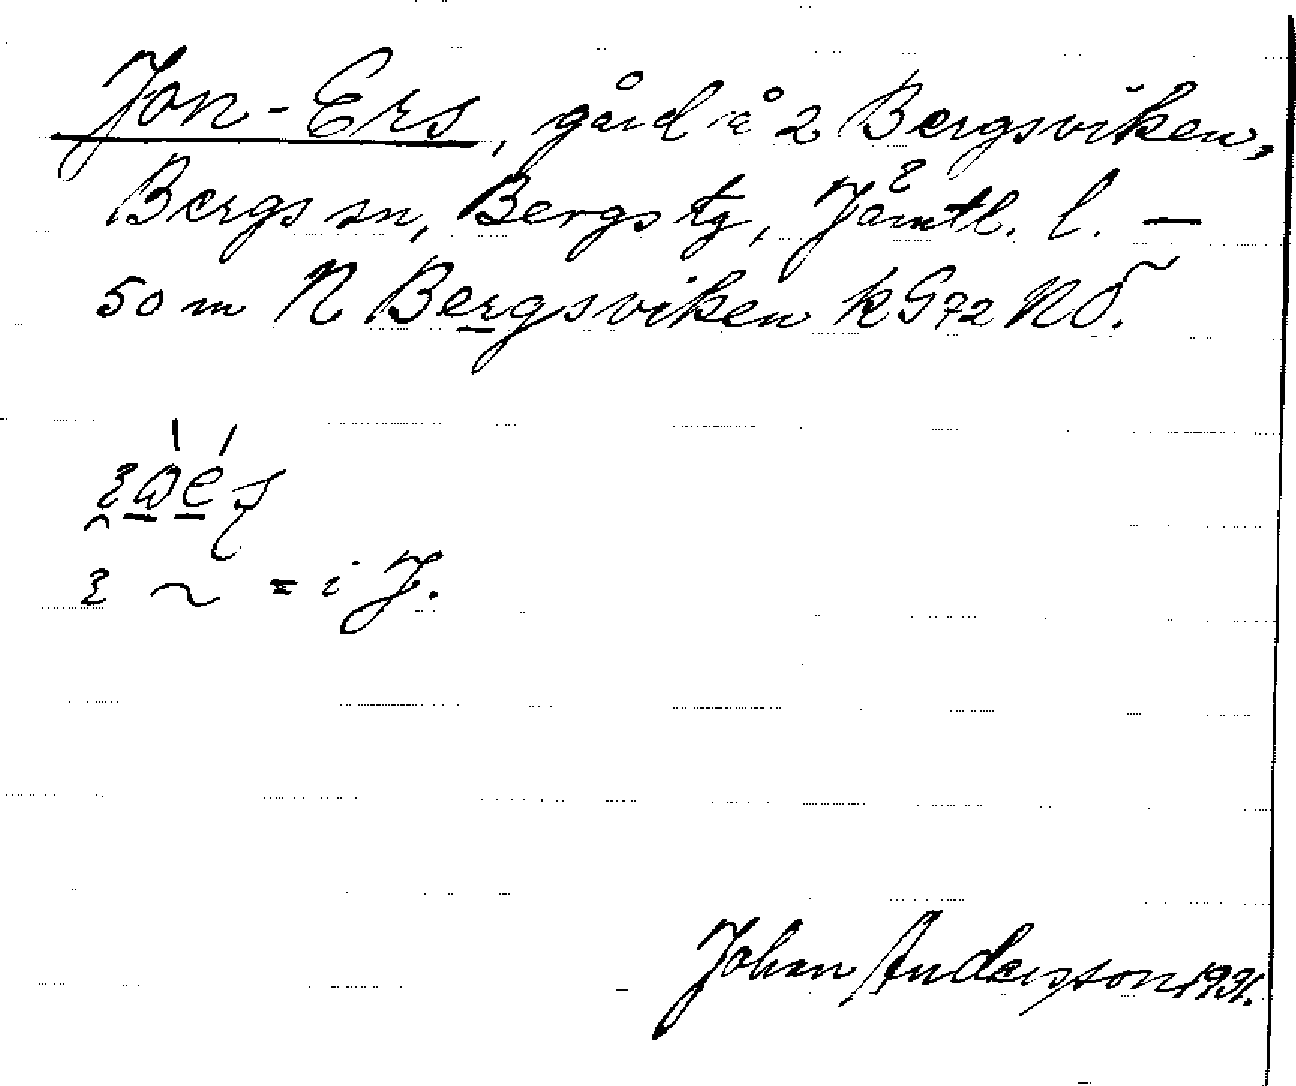 Jon-Ers, gård å 2 Bergsviken,
Bergs sn, Bergs tg, Jämtl. l. —
50 m N Bergsviken k G72 NO.
= i J.
Johan Andersson 1931.